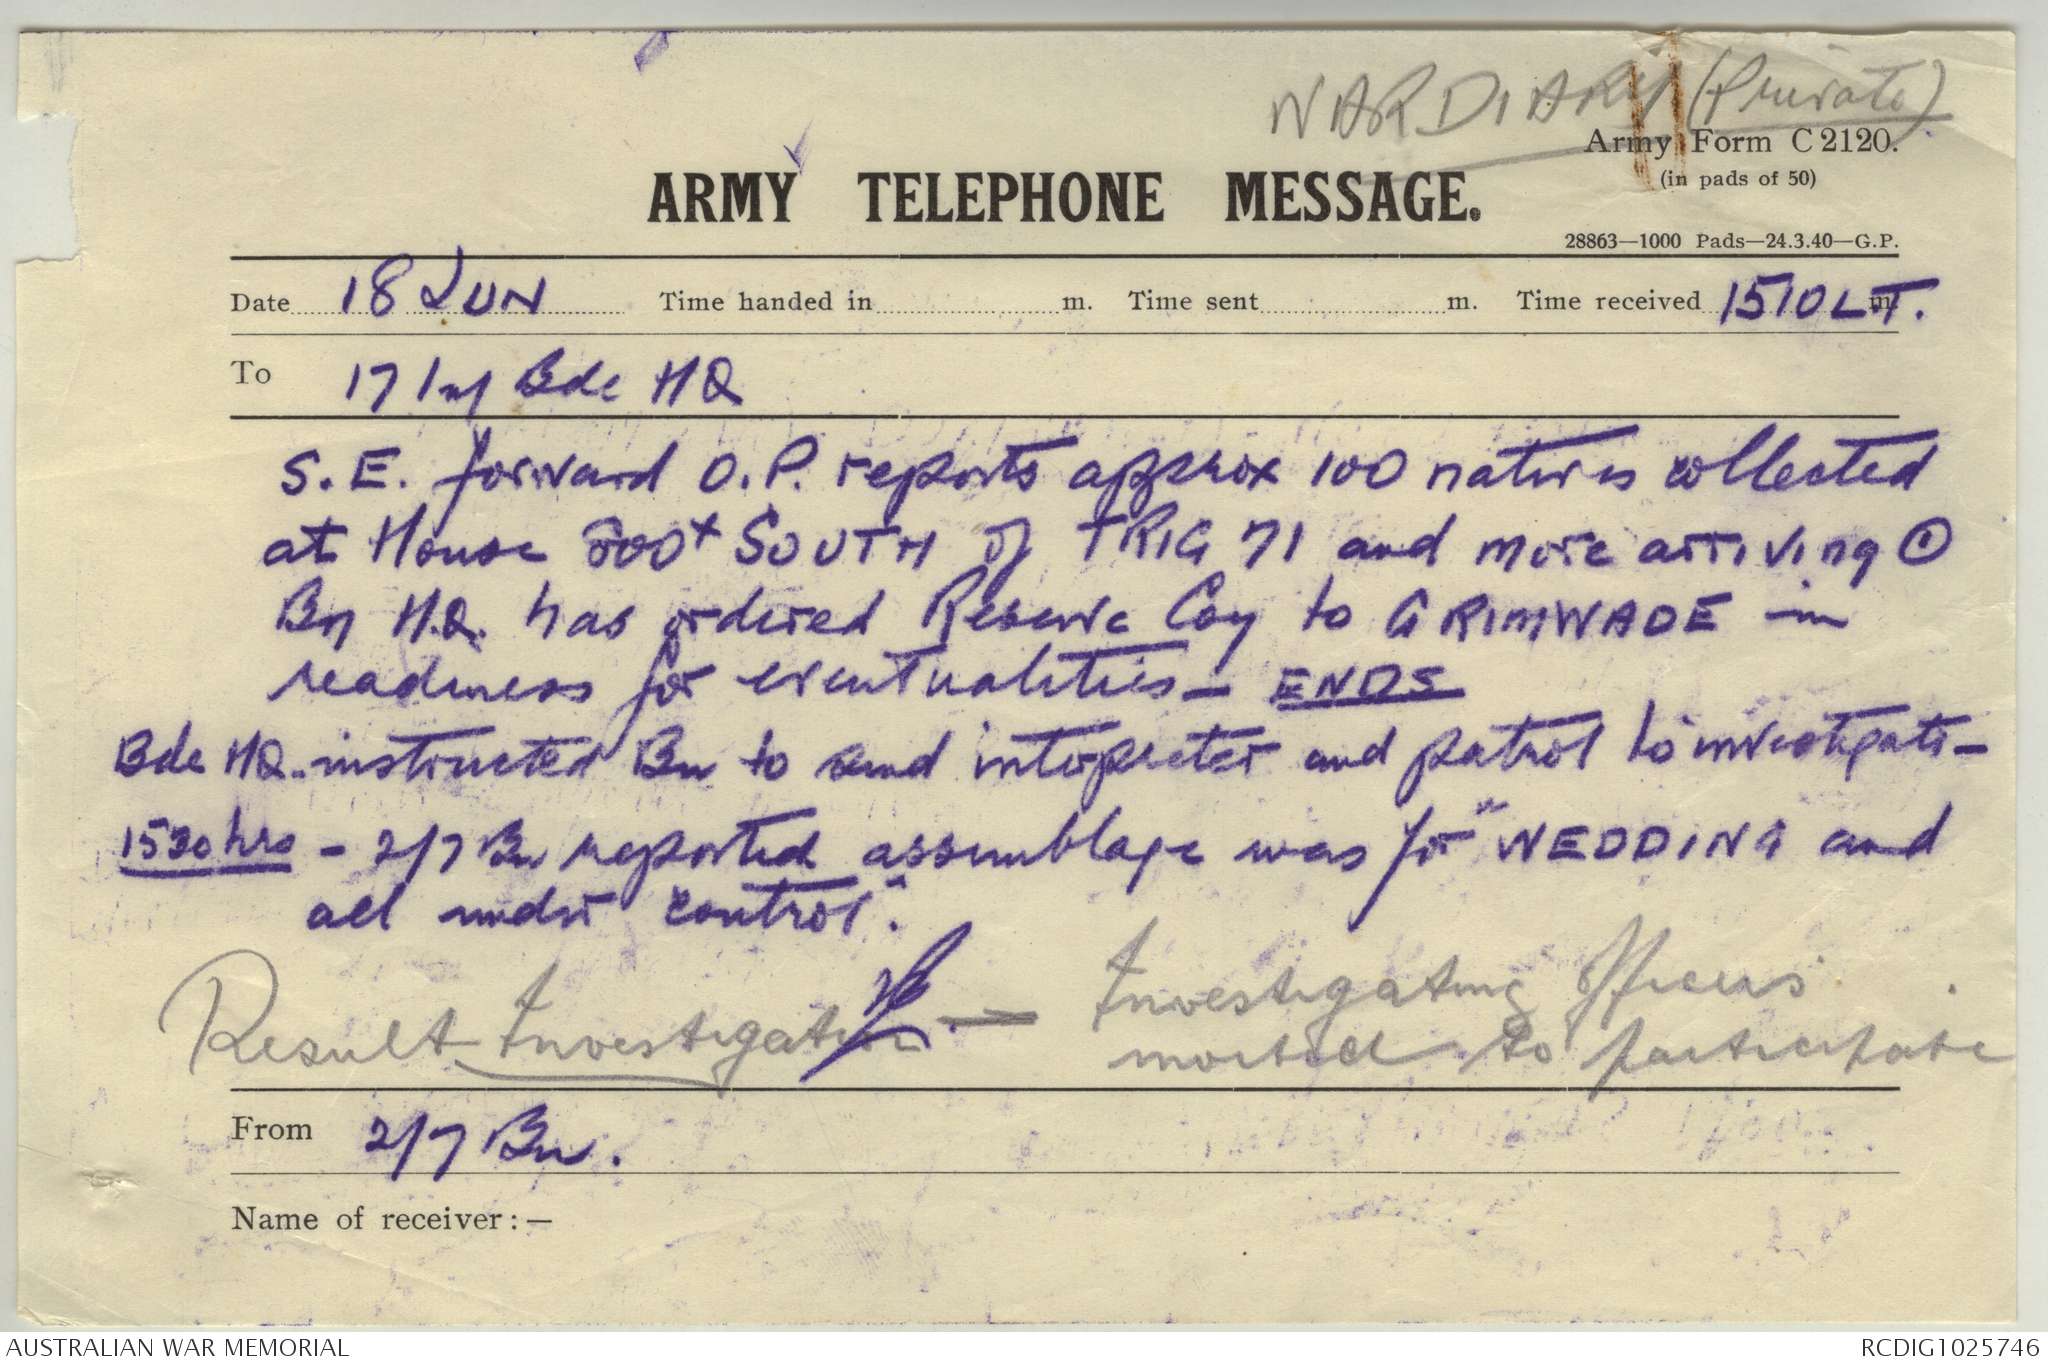 WAR DIARY (Private)
Army Form C 2120.
(in pads of 50)
ARMY TELEPHONE MESSAGE.
28863—1000 Pads—24.3.40—G.P.
Date 18 JUN Time handed in m. Time sent m. Time received 1510 LT. m.
To 17 Inf Bde HQ
S.E. forward O.P. reports approx 100 natives collected
at House 800x SOUTH of TRIG 71 and more arriving
Bn H.Q. has ordered Reserve Coy to GRIMWADE in
readiness for eventualities — ENDS
Bde HQ. instructed Bn to send interpreter and patrol to investigate —
1530 hrs — 2/7 Bn reported assemblage was for "WEDDING and
all under control".
Result Investigation — Investigating Officers
to participate
From 2/7 Bn.
Name of receiver:—
AUSTRALIAN WAR MEMORIAL
RCDIG1025746